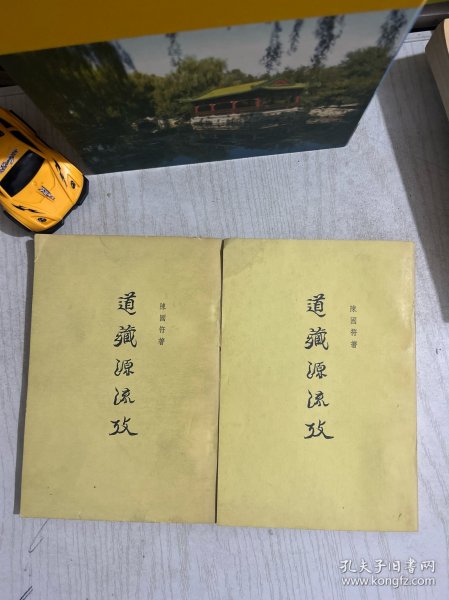 道藏源流攷
陳國符著
道藏源流攷
陳國符著
孔夫子旧书网
www.kongfz.com